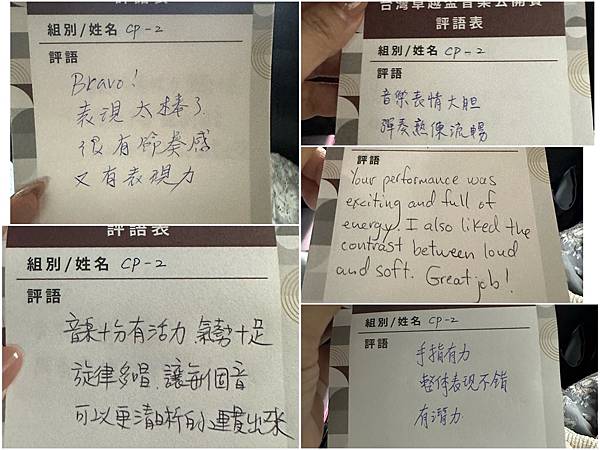 評語表
組別/姓名 CP-2
評語
Bravo!
表現太棒了
很有節奏感
又有表現力
台灣卓越盃音樂公開賽
評語表
組別/姓名 CP-2
評語
音樂表情大胆
彈奏熟練流暢
評語
Your performance was
exciting and full of
energy. I also liked the
contrast between loud
and soft. Great job!
評語表
組別/姓名 CP-2
評語
音樂十分有活力、氣勢十足
旋律多唱、讓每個音
可以更清晰的運出來
組別/姓名 CP-2
評語
手指有力
整体表現不錯
有潛力